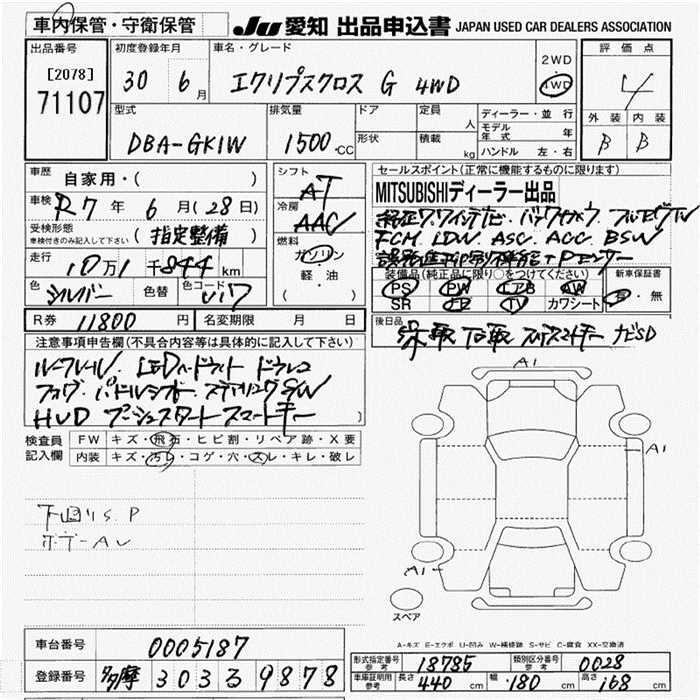 車内保管・守衛保管
JU 愛知 出品申込書 JAPAN USED CAR DEALERS ASSOCIATION
出品番号 [2078] 71107
初度登録年月 30 6月
車名・グレード エクリプスクロス G 4WD
2WD 4WD
評価点 4
外装 B 内装 B
型式 DBA-GK1W
排気量 1500 CC
ドア 形状
定員 人 積載 kg
ディーラー・並行
モデル年式 年
ハンドル 左・右
車歴 自家用・( )
車検 R7年 6月 (28日)
受検形態 車検付きのみ記入して下さい (指定整備)
走行 10万1千844km
色 シルバー 色替 色コード U17
シフト AT
冷房 AAC
燃料 ガソリン 軽・油 ( )
R券 11800円 名変期限 月 日
セールスポイント(正常に機能するものに限ります)
MITSUBISHIディーラー出品
FCM LDW ASC ACC BSW
装備品(純正品に限り○をつけてください)
PS PW エアB AW
SR 革 TV カワシート
新車保証書 有・無
後日品 ナビSD
注意事項申告欄(不具合内容等は具体的に記入して下さい)
ルーフレール LEDヘッドライト ドラレコ
フォグ パドルシフト ステアリングSW
HUD プッシュスタート スマートキー
検査員記入欄
FW キズ・飛石・ヒビ割・リペア跡・X要
内装 キズ・汚レ・コゲ・穴・スレ・キレ・破レ
下廻りS.P
A1
A1
A1
スペア
A-キズ E-エクボ U-凹み W-補修跡 S-サビ C-腐食 XX-交換済
車台番号 0005187
登録番号 多摩 303 る 9878
形式指定番号 参考 18785 類別区分番号 参考 0028
車庫証明用 参考 長さ 440cm 幅 180cm 高さ 168cm